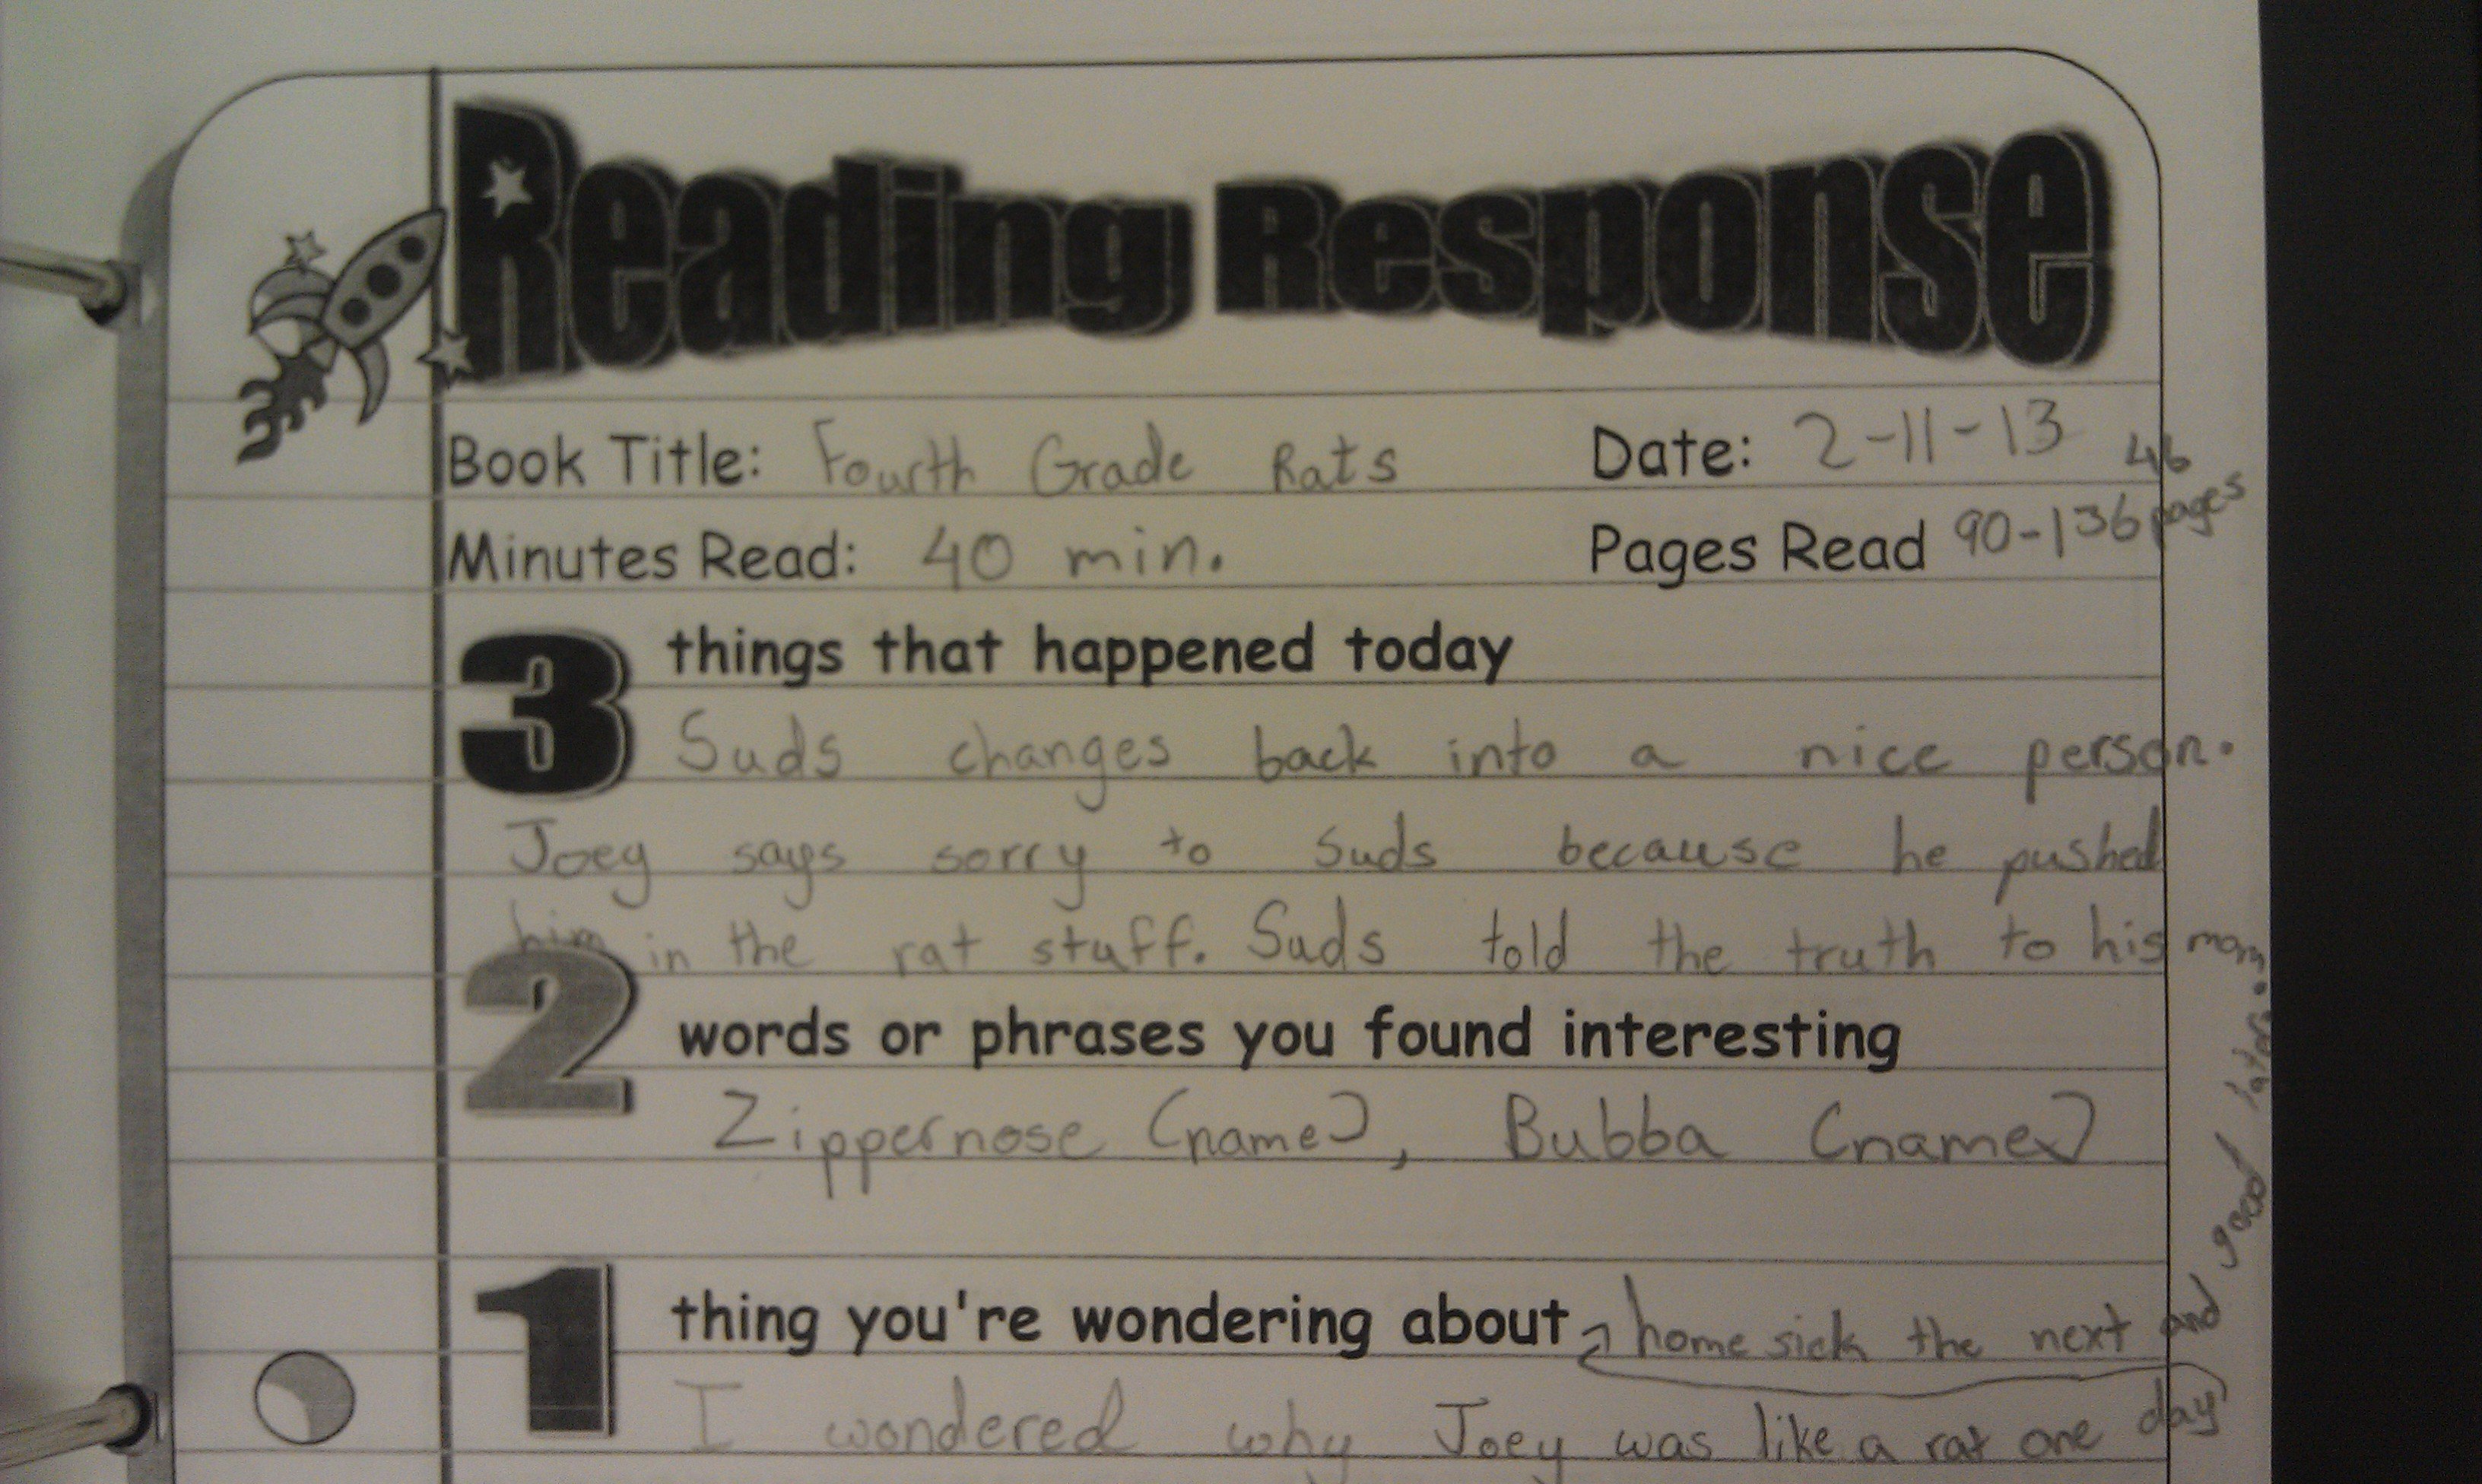 Reading Response
Book Title: Fourth Grade Rats Date: 2-11-13
46 pages
Minutes Read: 40 min. Pages Read 90-136
3 things that happened today
Suds changes back into a nice person.
Joey says sorry to Suds because he pushed
him in the rat stuff. Suds told the truth to his mom.
2 words or phrases you found interesting
Zippernose (name), Bubba (name)
1 thing you're wondering about
I wondered why Joey was like a rat one day
home sick the next and good later.